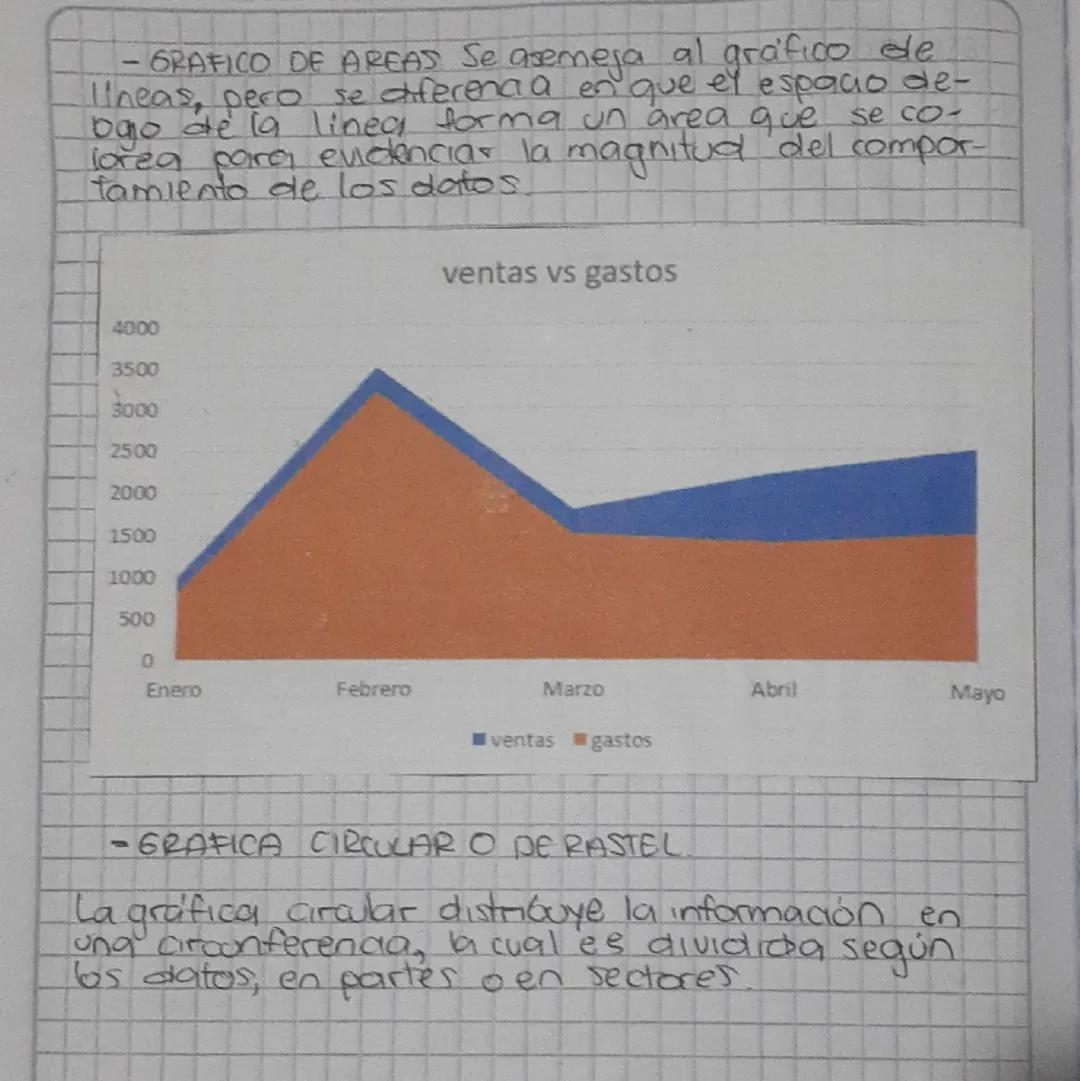 - GRAFICO DE AREAS Se asemeja al gráfico de
líneas, pero se diferencia en que el espacio de-
bajo de la linea forma un area que se co-
lorea para evidenciar la magnitud del compor-
tamiento de los datos.
ventas vs gastos
4000
3500
3000
2500
2000
1500
1000
500
0
Enero Febrero Marzo Abril Mayo
ventas gastos
- GRAFICA CIRCULAR O DE PASTEL.
La gráfica circular distribuye la información en
una circonferencia, la cual es dividida según
los datos, en partes o en sectores.